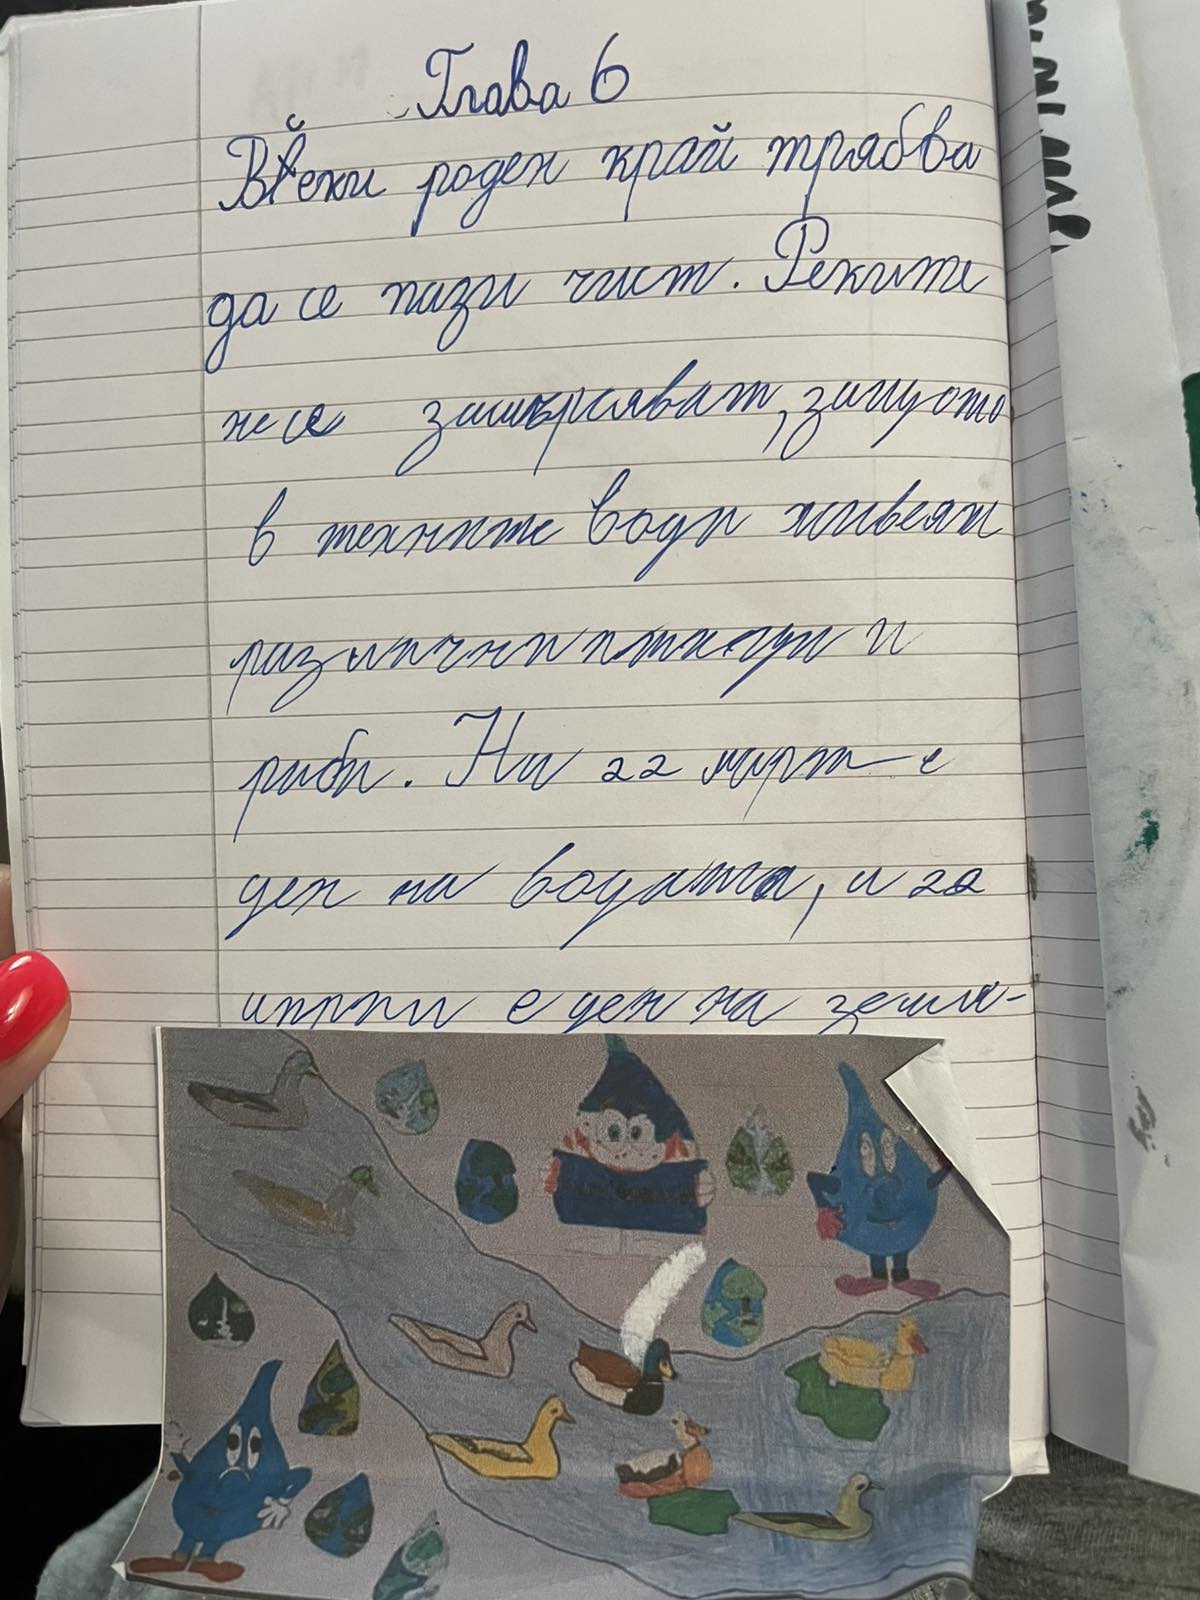 Глава 6
Всеки роден край трябва
да се пази чист. Реките
не се замърсяват, защото
в техните води живеят
различни птици и
риби. На 22 март е
ден на водата, и 22
април е ден на земя-